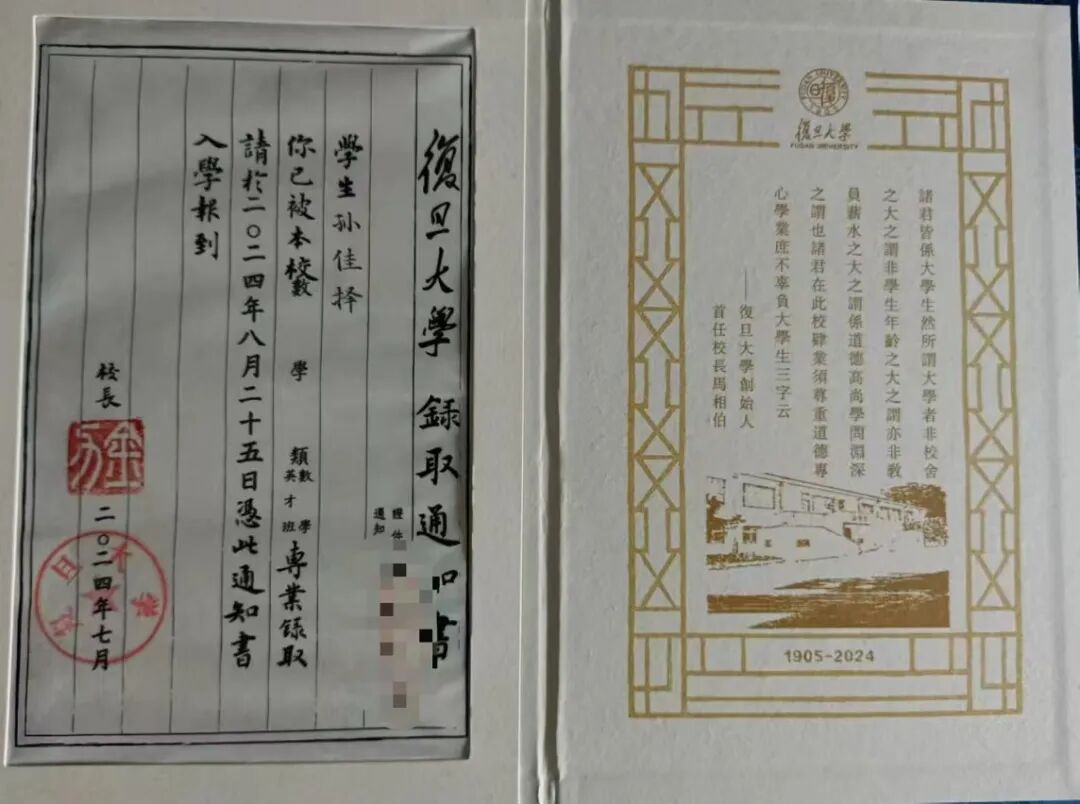 復旦大學 錄取通知書
通知
證件
學生孙佳择
你已被本校數學類數學英才班專業錄取
請於二〇二四年八月二十五日憑此通知書
入學報到
校長
金力
二〇二四年七月
FUDAN UNIVERSITY
復旦
1905
復旦大學
FUDAN UNIVERSITY
諸君皆係大學生然所謂大學者非校舍
之大之謂非學生年齡之大之謂亦非教
員薪水之大之謂係道德高尚學問淵深
之謂也諸君在此校肄業須尊重道德專
心學業庶不辜負大學生三字云
——復旦大學創始人
首任校長馬相伯
1905-2024